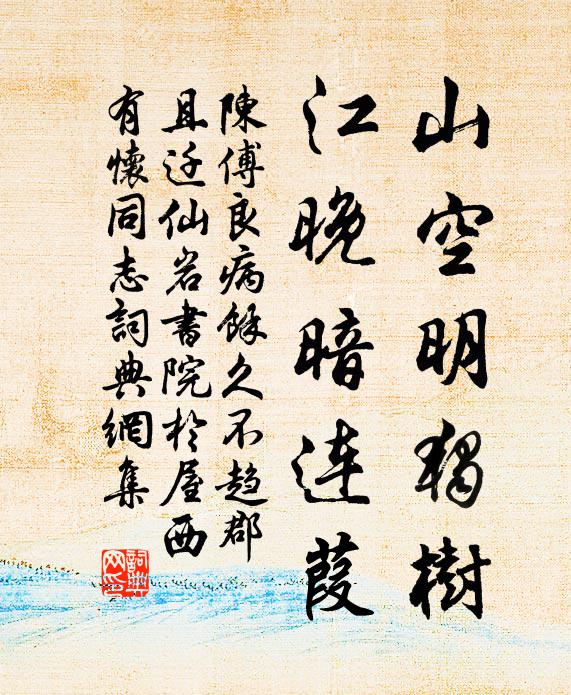 山空明獨樹
江晚暗连葭
陳傅良病餘久不趋郡
且迁仙岩書院於屋西
有懷同志詞典網集